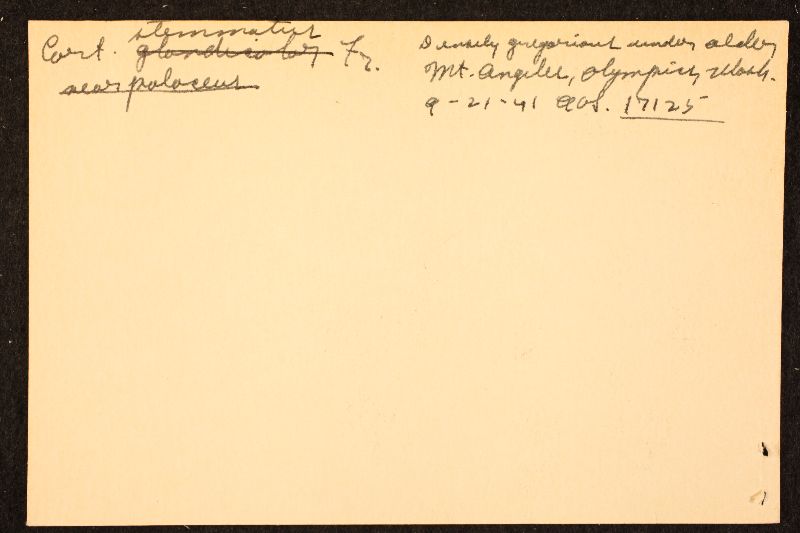 stemmatus
Cort. glandicolor Fr.
near paleaceus
Densely gregarious under alder
Mt. Angeles, Olympics, Wash.
9-21-41 AHS. 17125